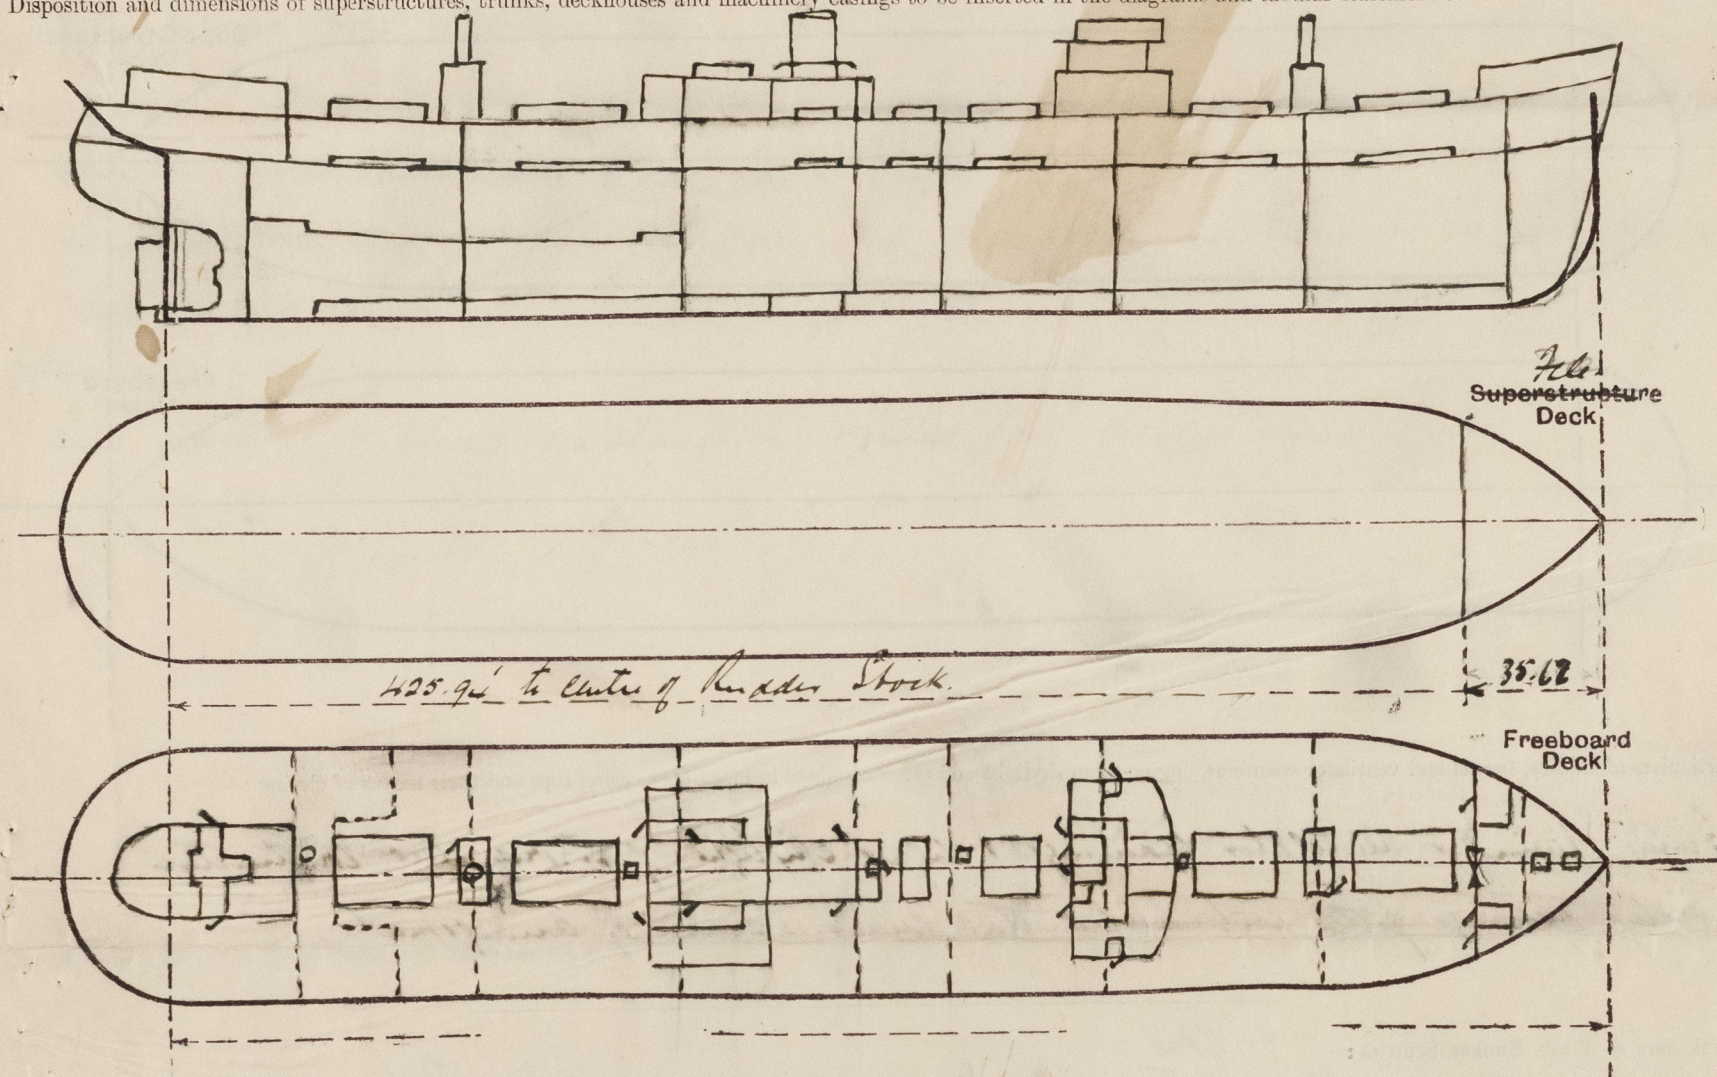 Disposition and dimensions of superstructures, trunks, deckhouses and machinery casings to be inserted in the diagrams and tabular statement.
Fcle.
Superstructure
Deck
425.94' to centre of Rudder Stock.
35.62
Freeboard
Deck